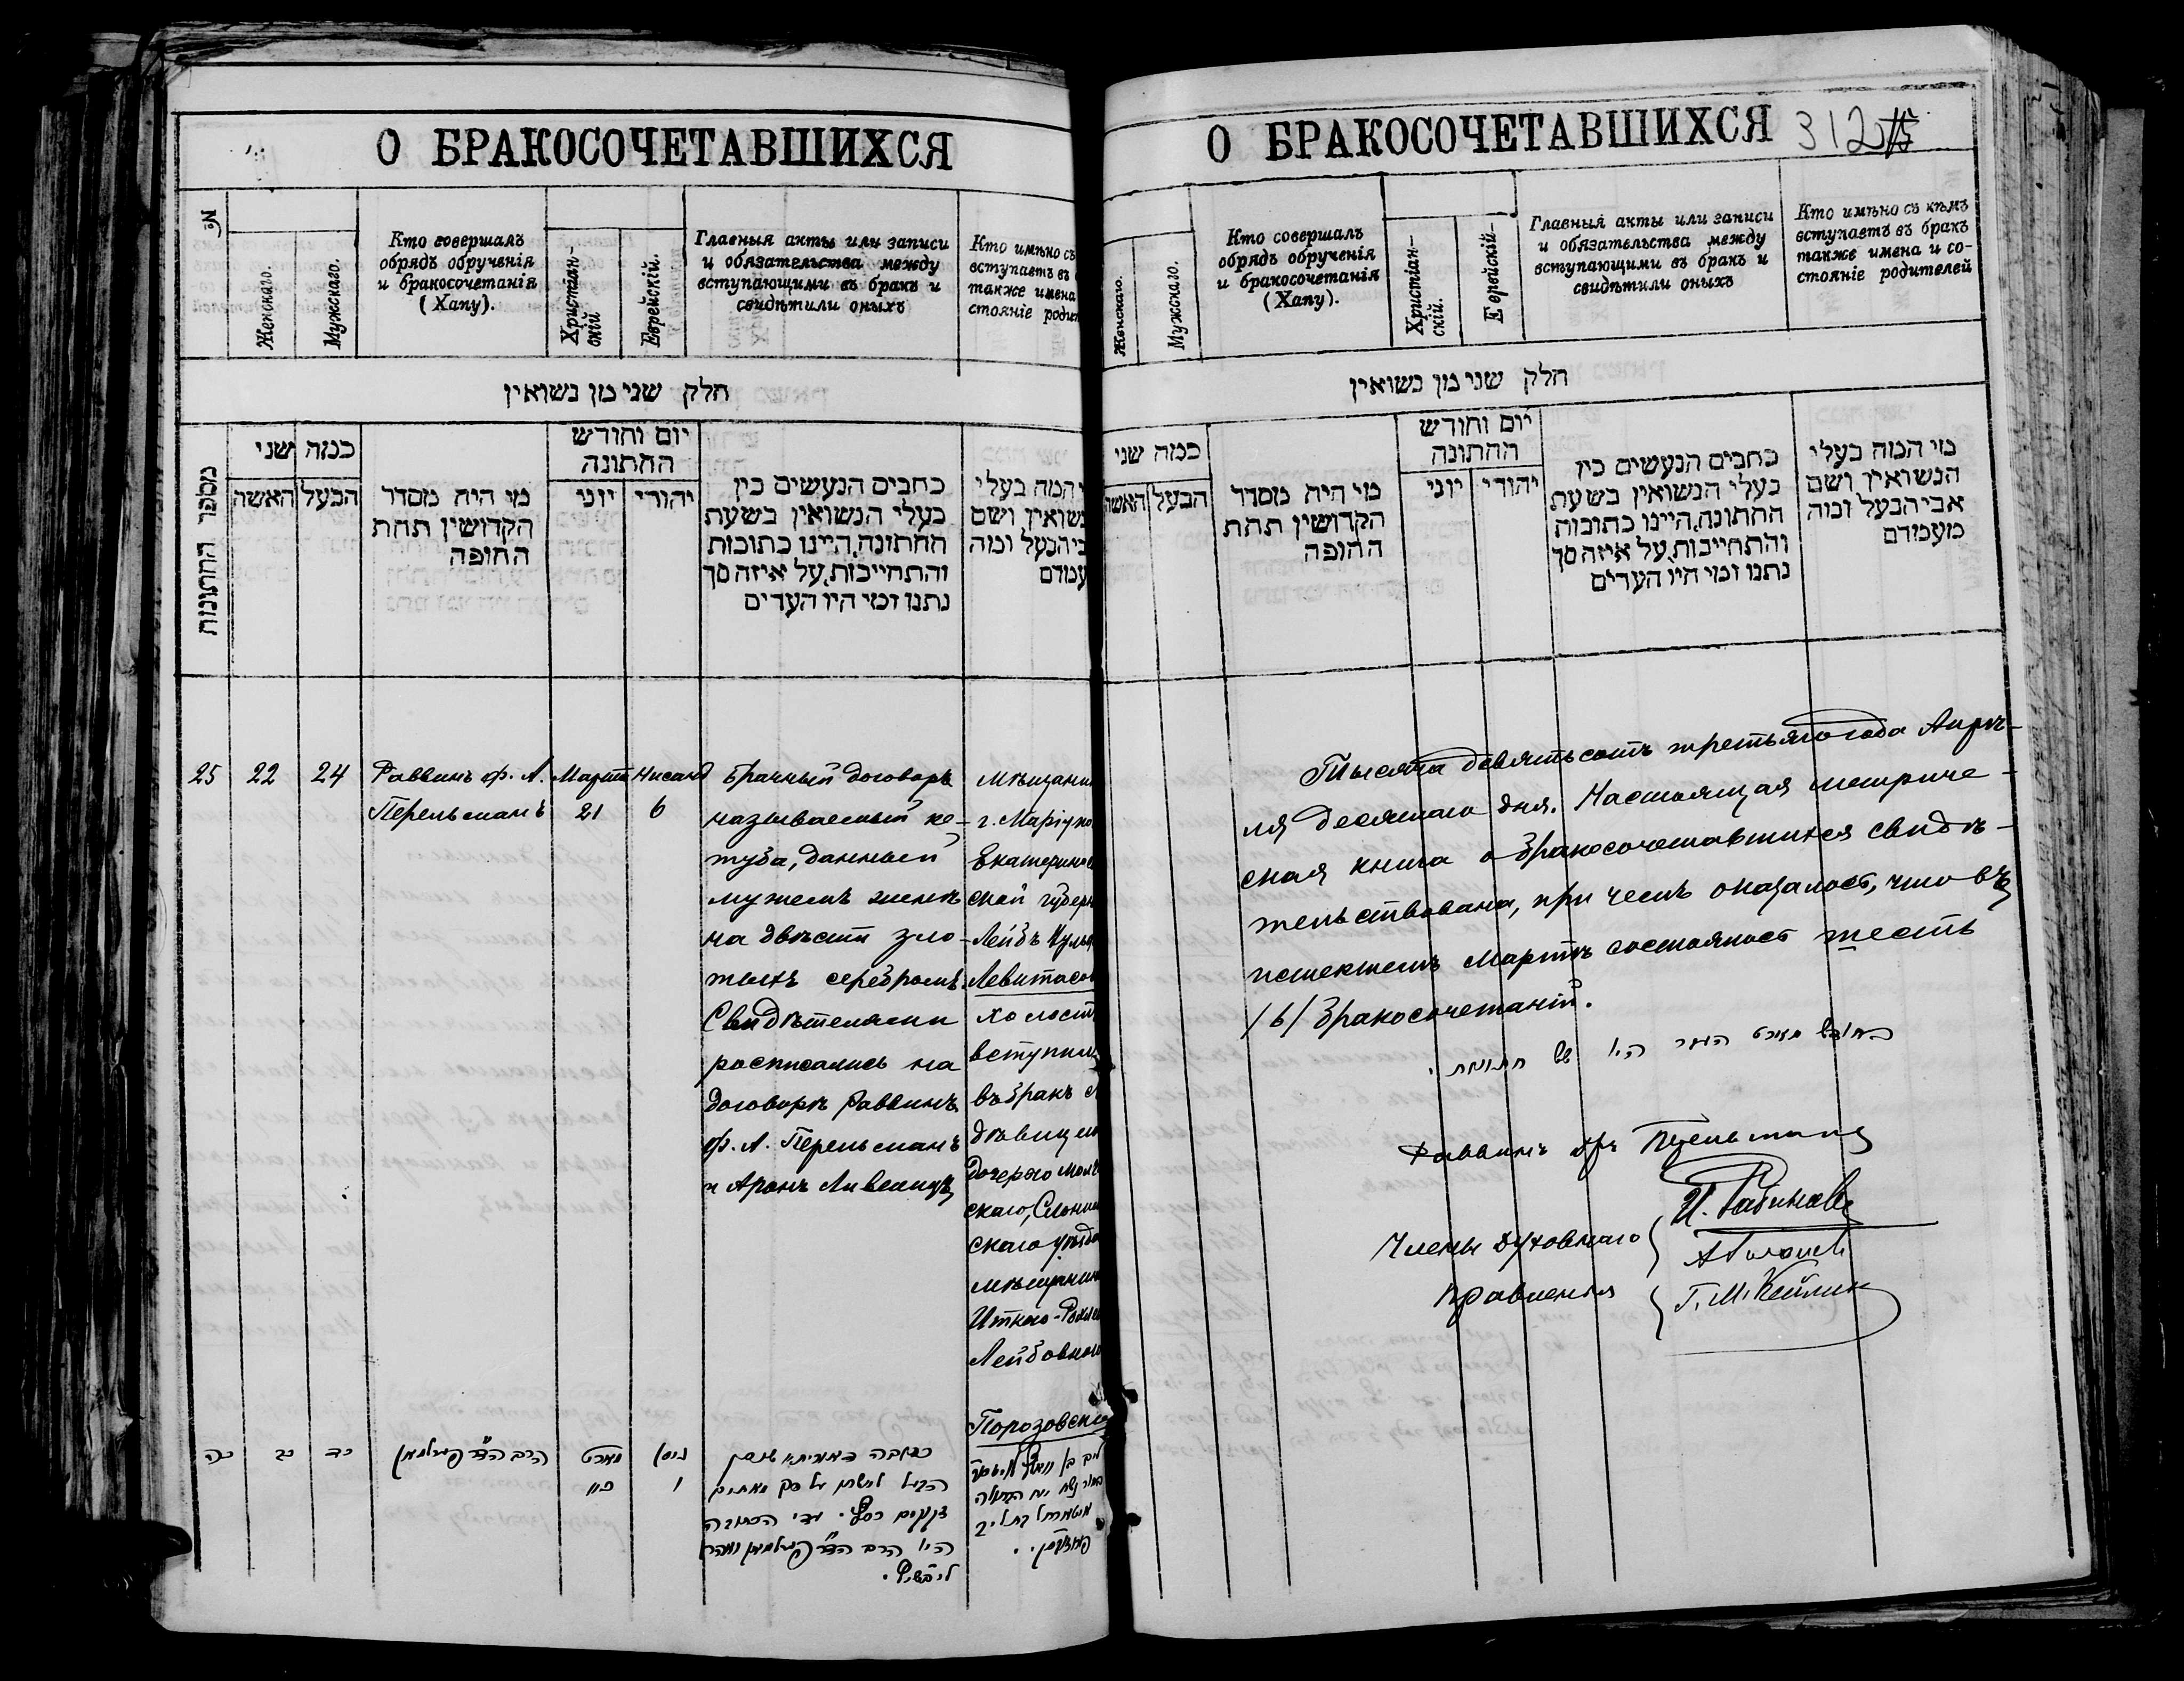 О БРАКОСОЧЕТАВШИХСЯ
№
Женскаго.
Мужскаго.
Кто совершалъ
обрядъ обрученія
и бракосочетанія
(Хапу).
Христіан-
скій
Еврейскій.
Главныя акты или записи
и обязательства между
вступающими въ бракъ и
свидѣтили оныхъ
Кто имѣно съ
вступаетъ въ
также имена
стояніе родит
חלק שני מן נשואין
מספר החתונות
כמה שני
האשה
הבעל
מי היה מסדר
הקדושין תחת
החופה
יום וחודש
החתונה
יוני
יהודי
כתבים הנעשים בין
בעלי הנשואין בשעת
החתונה, היינו כתובות
והתחייבות, על איזה סך
נתנו ומי היו העדים
המה בעלי
נשואין ושם
ביהבעל ומה
עמדם
25
22
24
Раввинъ ф. А.
Перельманъ
Марта
21
Нисанъ
6
Брачный договоръ
называемый ке-
туба, данный
мужемъ женѣ
на двѣсти зло-
тыхъ серебромъ.
Свидѣтелями
росписались на
договорѣ Раввинъ
ф. А. Перельманъ
и Аронъ Лившицъ
мѣщанин
г. Маріупо
Екатеринос
ской губерн
Лейбъ
Левитасо
холост
вступилъ
въ бракъ с
дѣвицею
дочерью
скаго, Слоним
скаго уѣзда
мѣщанин
Лейбовною
Порозовск
כה
כב
כד
הרב הד״ר פערלמאן
מארט
כא
ניסן
ו
כסף. עדי הכתובה
היו הרב הד״ר פערלמאן ואהרן
ליפשיץ.
О БРАКОСОЧЕТАВШИХСЯ 312
Женскаго.
Мужскаго.
Кто совершалъ
обрядъ обрученія
и бракосочетанія
(Хапу).
Христіан-
скій.
Еврейскій-
Главныя акты или записи
и обязательства между
вступающими въ бракъ и
свидѣтили оныхъ
Кто имѣно съ кѣмъ
вступаетъ въ бракъ
также имена и со-
стояніе родителей
חלק שני מן נשואין
כמה שני
האשה
הבעל
מי היה מסדר
הקדושין תחת
החופה
יום וחודש
החתונה
יוני
יהודי
כתבים הנעשים בין
בעלי הנשואין בשעת
החתונה, היינו כתובות
והתחייבות, על איזה סך
נתנו ומי היו העדים
מי המה בעלי
הנשואין ושם
אביהבעל ומה
מעמדם
Тысяча девятьсотъ третьяго года Апрѣ-
ля десятаго дня. Настоящая метриче-
ская книга о бракосочетавшихся свидѣ-
тельствована, при чемъ оказалось, что въ
истекшемъ Мартѣ состоялось шесть
/6/ бракосочетаній.
בחודש מארט העבר היו שש חתונות.
Раввинъ Др Перельманъ
Члены Духовнаго
Правленія
Г. М. Кейлин